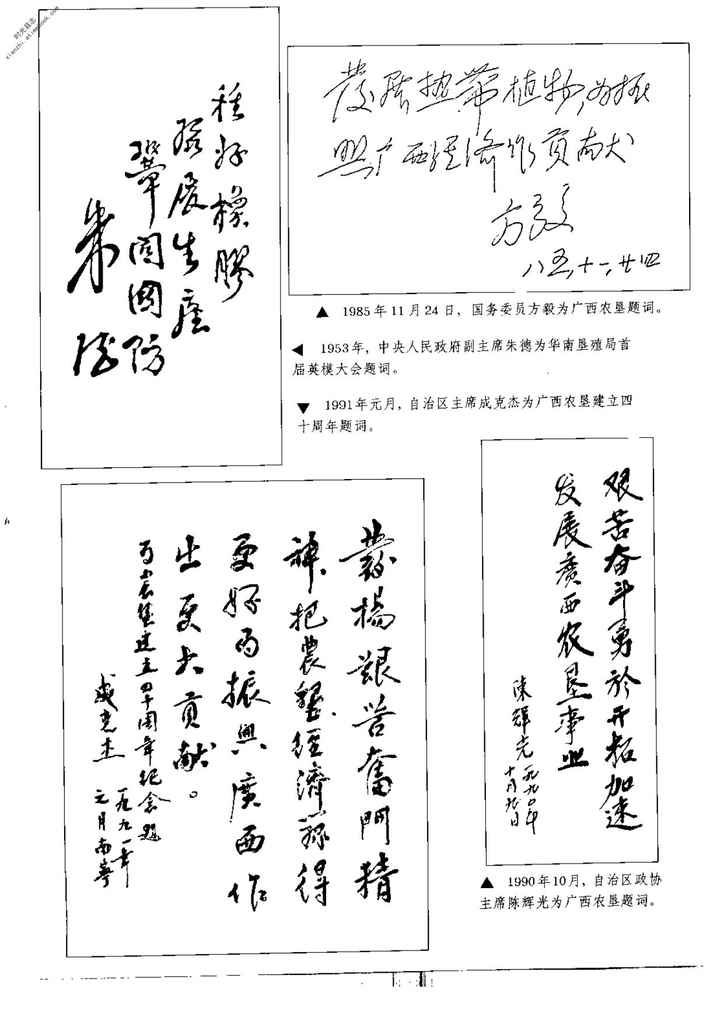 时光县志
种好橡膠
發展生產
鞏固國防
朱德
發展热带植物,为振
興广西经济作貢献
方毅
八五,十一,廿四
▲ 1985年11月24日,国务委员方毅为广西农垦题词。
◀ 1953年,中央人民政府副主席朱德为华南垦殖局首
届英模大会题词。
▼ 1991年元月,自治区主席成克杰为广西农垦建立四
十周年题词。
艰苦奋斗勇於开拓加速
发展廣西农垦事业
陳輝光一九九〇年
十月九日
▲ 1990年10月,自治区政协
主席陈辉光为广西农垦题词。
發揚艱苦奮鬥精
神,把農墾經濟辦得
更好為振興廣西作
出更大貢献。
為農墾建立四十周年纪念题
成克杰
一九九一年
元月南寧